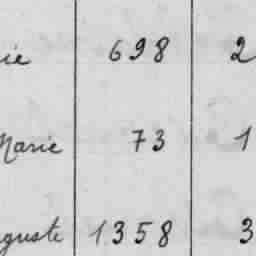 ie 698 2
Marie 73 1
guste 1358 3